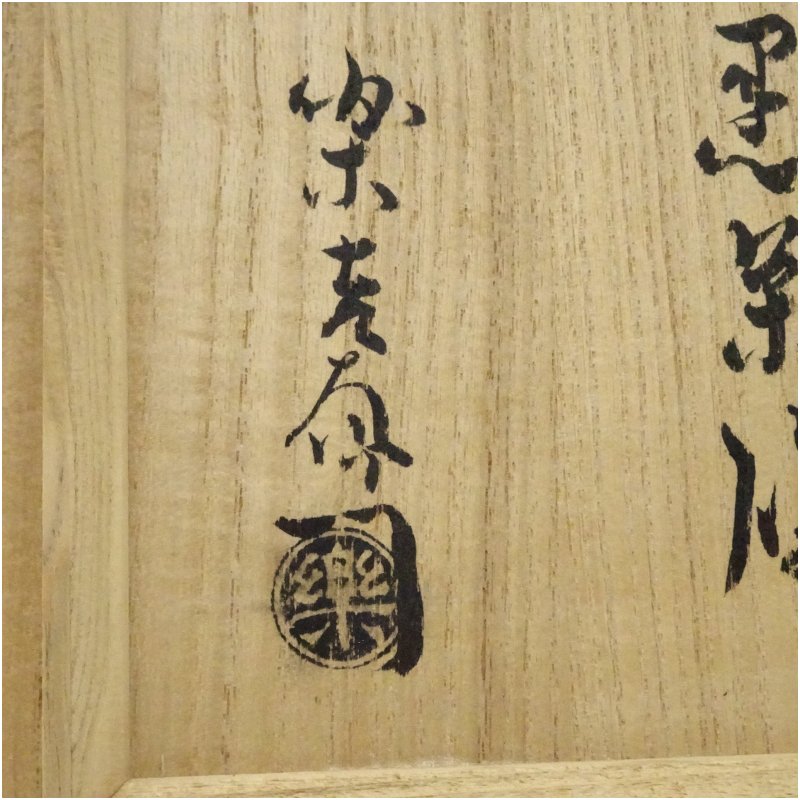 黒茶
楽吉左衛門
樂